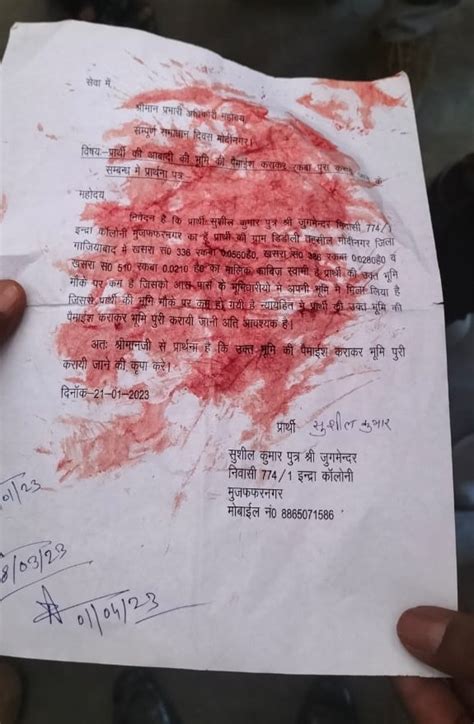 सेवा में,
श्रीमान प्रभारी अधिकारी महोदय,
सम्पूर्ण समाधान दिवस मोदीनगर।
विषय-प्रार्थी की आबादी की भूमि की पैमाईश कराकर रकबा पुरा कराये जाने के
सम्बन्ध में प्रार्थना पत्र
महोदय,
निवेदन है कि प्रार्थी सुशील कुमार पुत्र श्री जुगमेन्दर निवासी 774/1
इन्द्रा कॉलोनी मुजफ्फरनगर का है प्रार्थी की ग्राम डिडौली तहसील मोदीनगर जिला
गाजियाबाद में खसरा स0 336 रकबा 0.0550है0, खसरा स0 386 रकबा 0.0280है0 व
खसरा स0 510 रकबा 0.0210 है0 का मालिक काबिज स्वामी है प्रार्थी की उक्त भूमि
मौके पर कम है जिसको आस पास के भूमिधारीयो ने अपनी भूमि में मिला लिया है
जिससे प्रार्थी की भूमि मौके पर कम हो गयी है न्यायहित में प्रार्थी की उक्त भूमि की
पैमाईश कराकर भूमि पुरी करायी जानी अति आवश्यक है।
अतः श्रीमानजी से प्रार्थना है कि उक्त भूमि की पैमाईश कराकर भूमि पुरी
करायी जाने की कृपा करे।
दिनॉक-21-01-2023
प्रार्थी सुशील कुमार
सुशील कुमार पुत्र श्री जुगमेन्दर
निवासी 774/1 इन्द्रा कॉलोनी
मुजफफरनगर
मोबाईल नं0 8865071586
/01/23
8/03/23
01/04/23